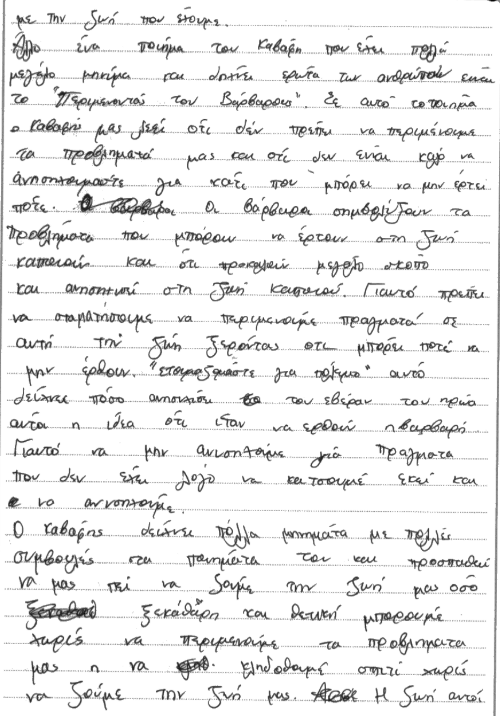 με την ζωή που έχουμε.
Άλλο ένα ποίημα του Καβάφη που έχει πολύ
μεγάλο μήνυμα και δείχνει των ανθρώπων είναι
το "Περιμένοντας τον Βάρβαρους". Σε αυτό το ποίημα
ο Καβάφης μας λέει οτι δεν πρέπει να περιμένουμε
τα προβλήματα μας και οτί δεν είναι καλό να
ανησηχούμαστε για κάτι που μπόρει να μην έρτει
πότε. Οι βάρβαροι συμβολίζουν τα
προβλήματα που μπόρουν να έρτουν στη ζωή
καποιού και ότι προκαλούν μεγάλο σκοπό
και ανησηχιά στη ζωή καποιού. Γιαυτό πρέπει
να σταματήσουμε να περιμένουμε πράγματα σε
αυτή την ζωή ξέροντας οτι μπόρει ποτέ να
μην έρθουν. για πόλεμο" αυτό
δείχνει πόσο ανησηχιά του του ηρώα
αυτόι η ιδέα ότι να ερθούν η βαρβαρή
Γιαυτό να μην ανισηχούμε για πράγματα
που δεν έχει λόγο να κατσουμέ εκεί και
να ανησηχούμε.
Ο Καβάφης δείχνει πόλλα μηνήματα με πολλές
συμβουλές στα ποιήματα του και προσπαθεί
να μας πεί να ζούμε την ζωή μας οσό
ξεκάθαρη και θετική μπορουμέ
χωρίς να περιμένουμε τα προβλήματα
μας η να κληδοθουμέ σπιτί χωρίς
να ζούμε την ζωή μας. Η ζωή αυτοί